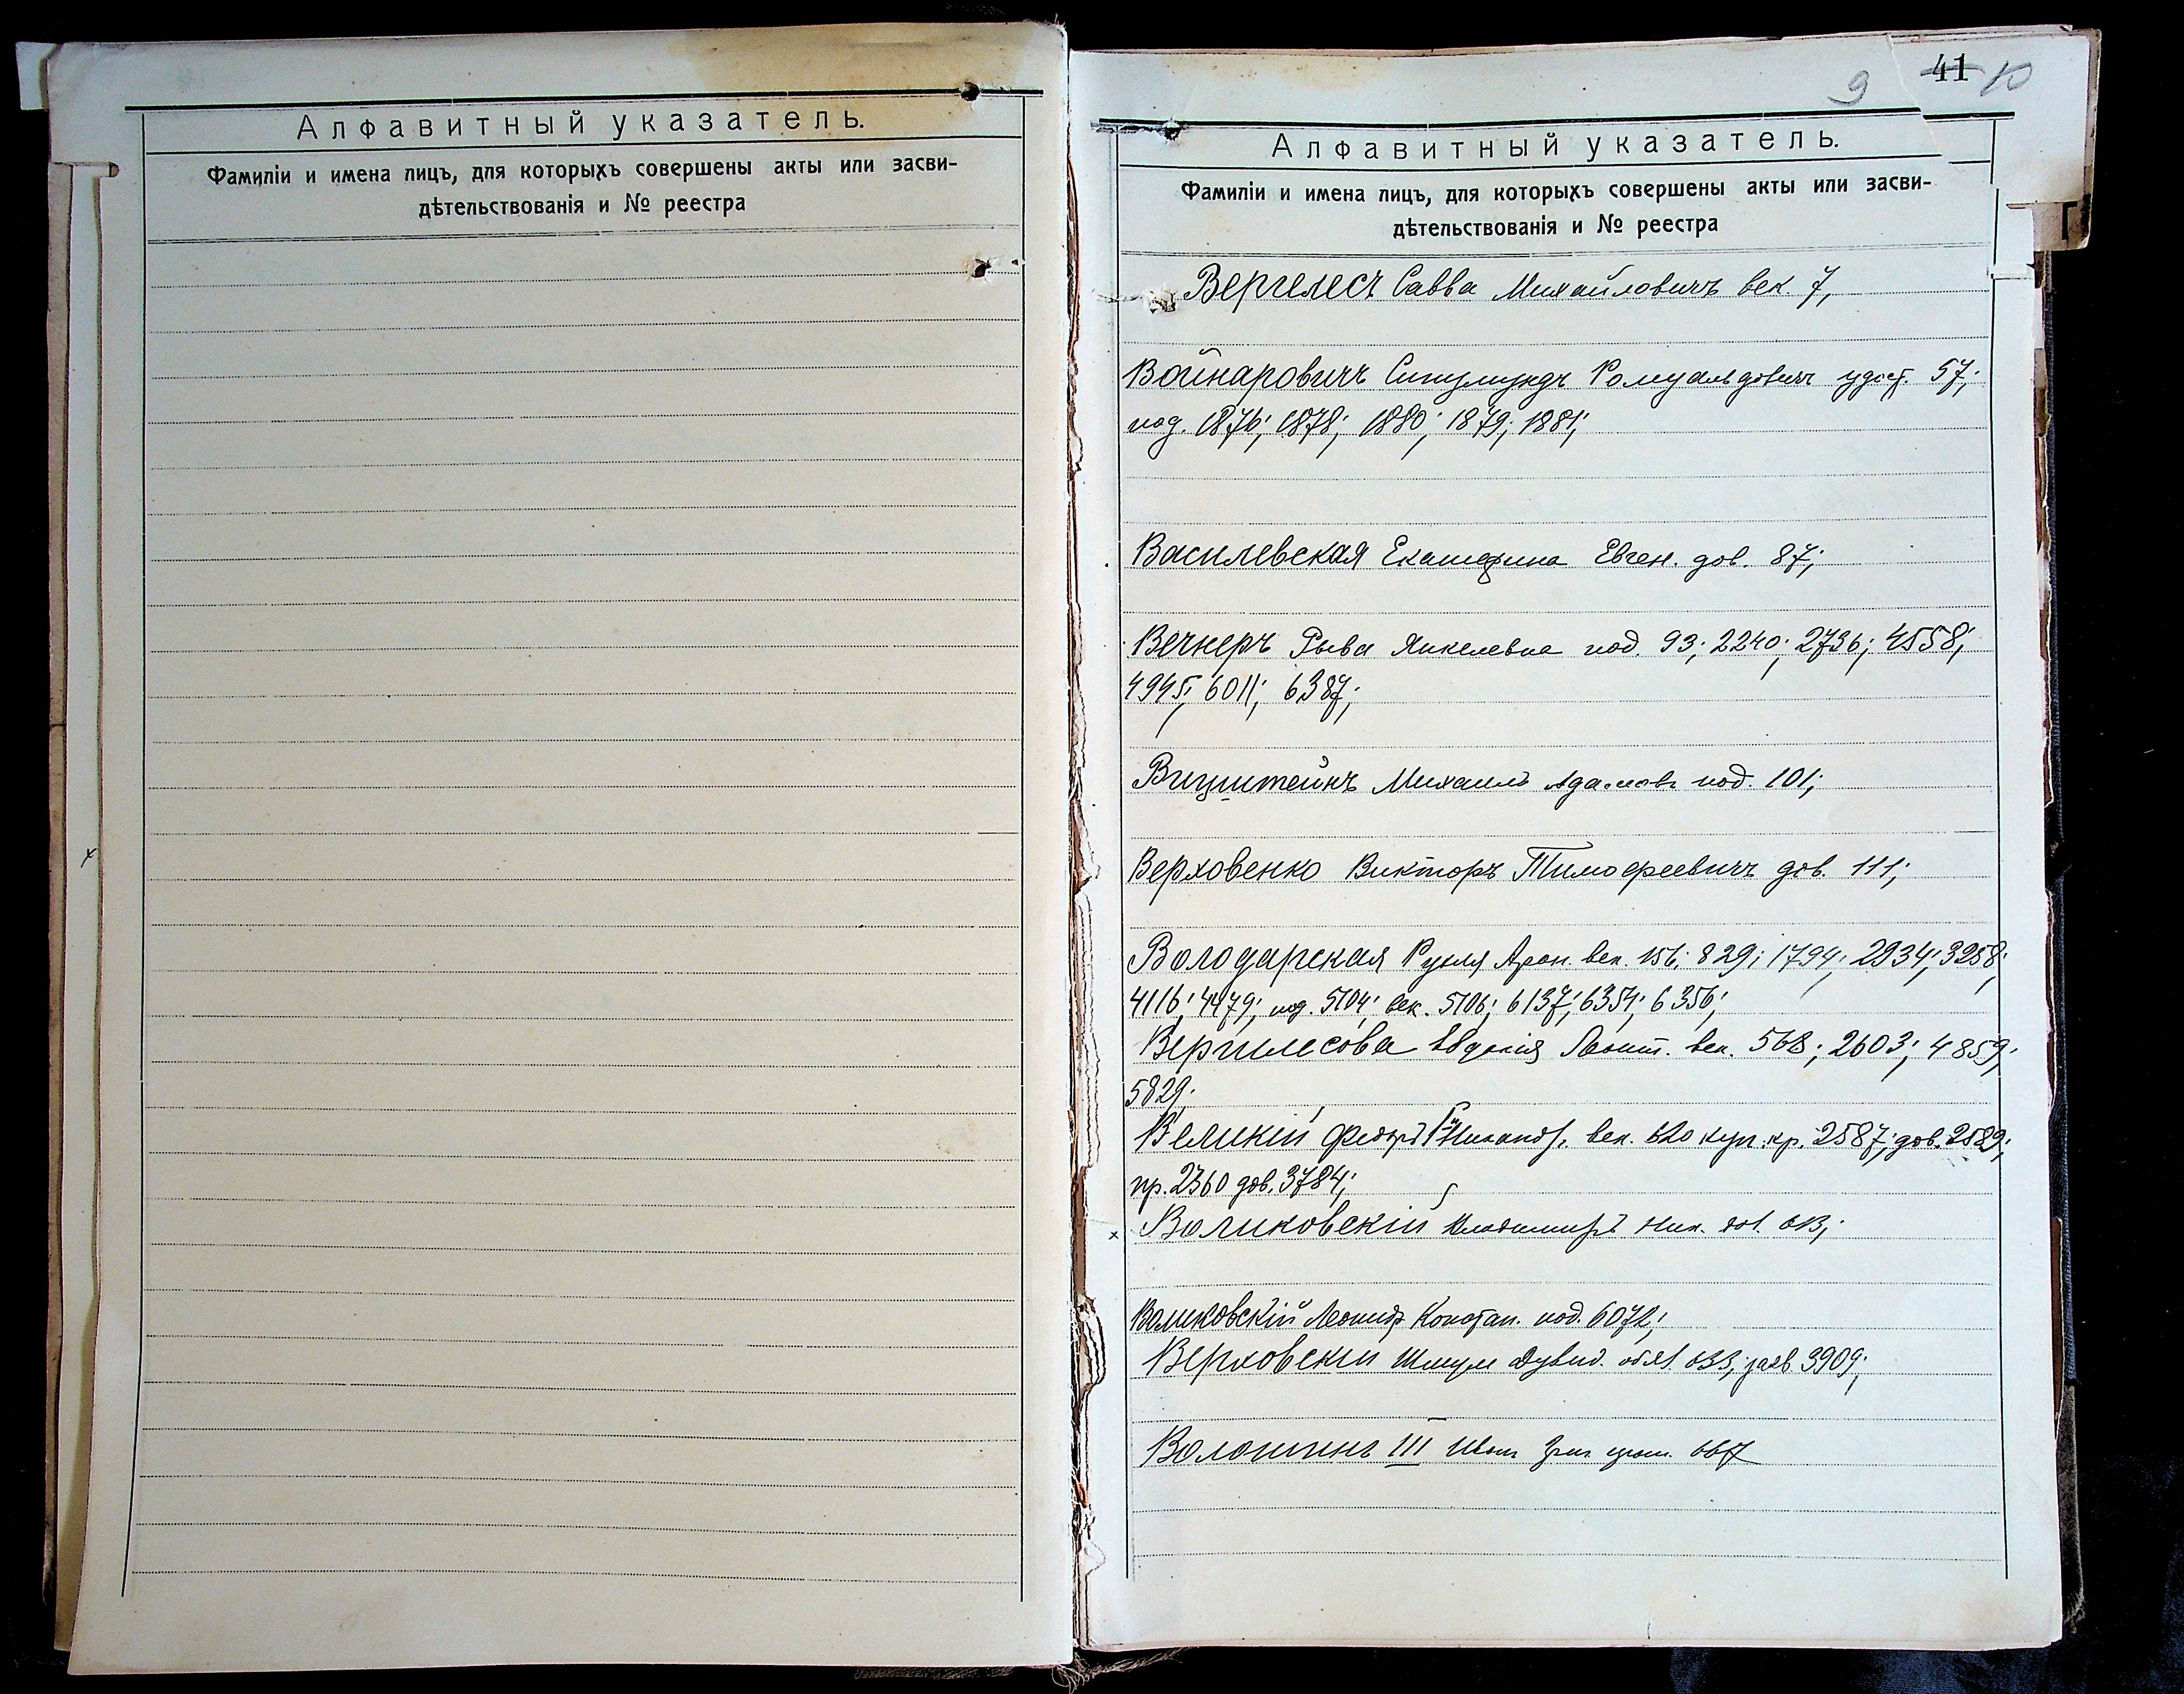 Алфавитный указатель.
Фамиліи и имена лицъ, для которыхъ совершены акты или засви-
дѣтельствованія и № реестра
9 41 10
Алфавитный указатель.
Фамиліи и имена лицъ, для которыхъ совершены акты или засви-
дѣтельствованія и № реестра
Г
Вергелесъ Савва Михайловичъ век. 7,
Войнаровичъ Сигизмундъ Ромуальдовичъ удост. 57;
под. 1876; 1878; 1880; 1879; 1881;
Василевская Екатерина Евген. дов. 87;
Вечнеръ Рыва Янкелевна под. 93; 2240; 2736; 4558;
4945; 6011; 6387;
Вицштейнъ Михаилъ Адамовъ под. 101;
Верховенко Викторъ Тимофеевичъ дов. 111;
Володарская Рухля Арон. век. 156; 829; 1794; 2934; 3258;
4116; 4479; под. 5104; век. 5106; 6137; 6354; 6356;
Вергилесова Евдокія Леонт. век. 568; 2603; 4859;
5829;
Великій Федоръ Никандр. век. 620 куп. кр. 2587; дов. 2589;
пр. 2360 дов. 3784;
Воликовскій Владимиръ Ник. дов.
Воликовскій Леонидъ Констан. под. 6072;
Верховскій Шмуль Дувид. объяв. 633; заяв. 3909;
Волошинъ III Иван 667